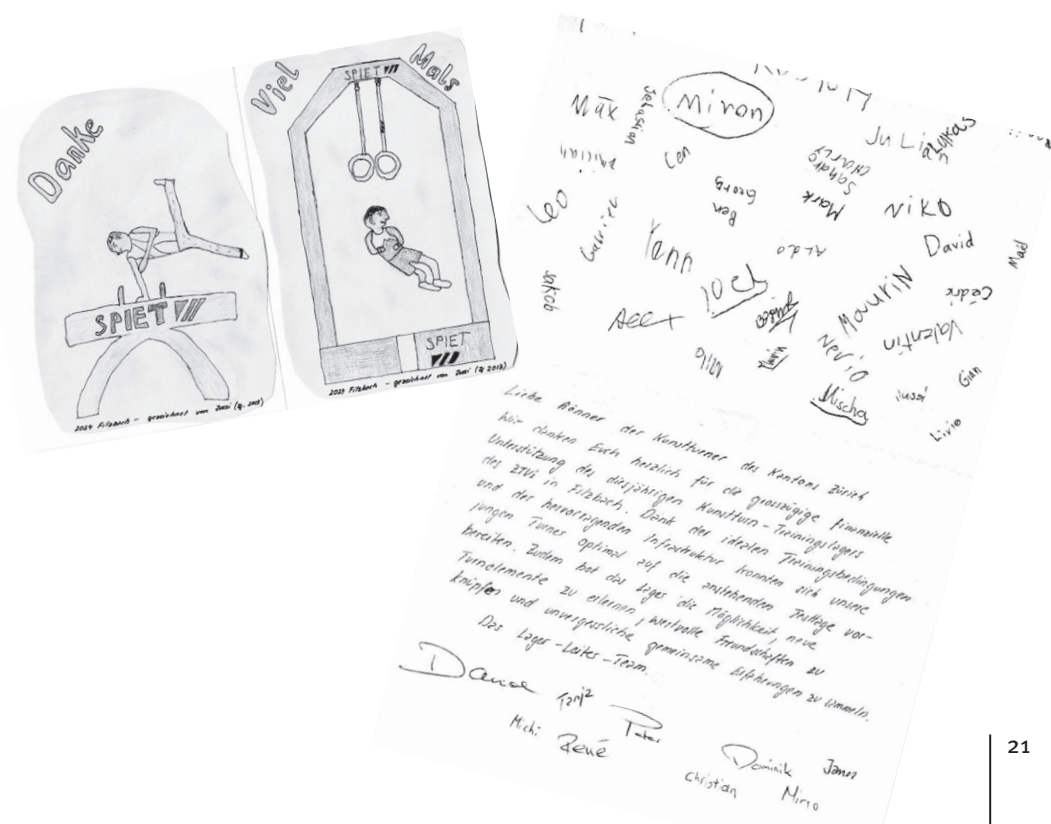 Danke
SPIET
2024 Filzbach - gezeichnet von Jussi (Jg. 2013)
Viel Mals
SPIET
SPIET
2024 Filzbach - gezeichnet von Jussi (Jg. 2013)
Max
Sebastian
Miron
Julian
Lukas
Len
Sandro
Charly
Leo
Gabriel
Ben
Georg
Mark
NiKO
Yann
ALDO
David
Mael
Jakob
Alex
Joel
MauriN
Cédric
Valentin
Nério
Yurin
Mischa
Jussi
Gian
Livio
Liebe Gönner der Kunstturner des Kantons Zürich
Wir danken Euch herzlich für die grosszügige finanzielle
Unterstützung des diesjährigen Kunstturn-Trainingslagers
des ZTVs in Filzbach. Dank der idealen Trainingsbedingungen
und der hervorragenden Infrastruktur konnten sich unsere
jungen Turner optimal auf die anstehenden Testtage vor-
bereiten. Zudem bot das Lager die Möglichkeit, neue
Turnelemente zu erlernen, wertvolle Freundschaften zu
knüpfen und unvergessliche gemeinsame Erfahrungen zu sammeln.
Das Lager-Leiter-Team.
Tanja
Peter
Michi
René
Dominik
Christian
Mirco
21